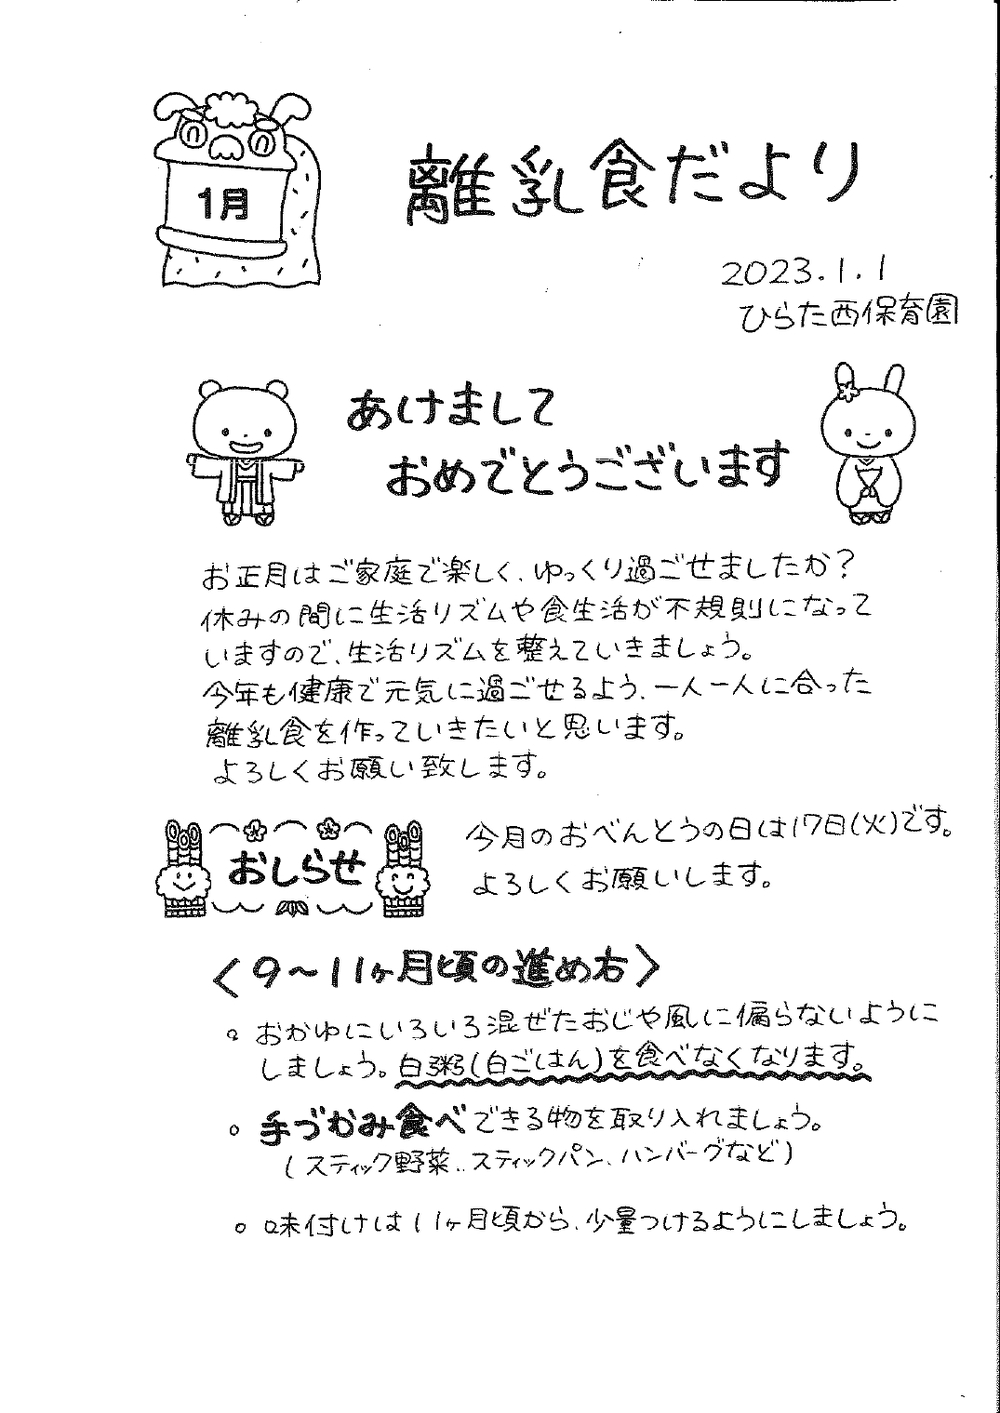 1月
離乳食だより
2023.1.1
ひらた西保育園
あけまして
おめでとうございます
お正月はご家庭で楽しく、ゆっくり過ごせましたか?
休みの間に生活リズムや食生活が不規則になって
いますので、生活リズムを整えていきましょう。
今年も健康で元気に過ごせるよう、一人一人に合った
離乳食を作っていきたいと思います。
よろしくお願い致します。
おしらせ
今月のおべんとうの日は17日(火)です。
よろしくお願いします。
〈9~11ヶ月頃の進め方〉
。おかゆにいろいろ混ぜたおじや風に偏らないように
しましょう。白粥(白ごはん)を食べなくなります。
。手づかみ食べできる物を取り入れましょう。
(スティック野菜、スティックパン、ハンバーグなど)
。味付けは11ヶ月頃から、少量つけるようにしましょう。